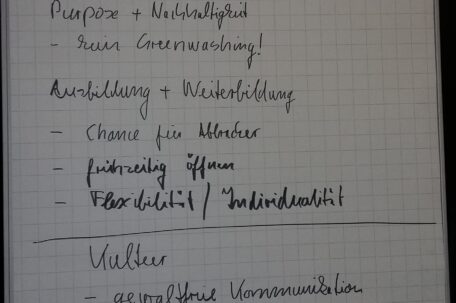 Purpose + Nachhaltigkeit
- kein Greenwashing!
Ausbildung + Weiterbildung
- Chance für Abbrecher
- frühzeitig öffnen
- Flexibilität / Individualität
Kultur
- gewaltfreie Kommunikation